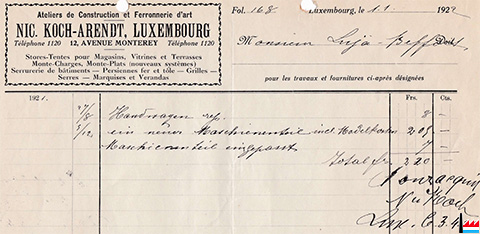 Ateliers de Construction et Ferronnerie d'art
NIC. KOCH-ARENDT, LUXEMBOURG
Téléphone 1120 12, AVENUE MONTEREY Téléphone 1120
Stores-Tentes pour Magasins, Vitrines et Terrasses
Monte-Charges, Monte-Plats (nouveaux systèmes)
Serrurerie de bâtiments — Persiennes fer et tôle — Grilles —
Serres — Marquises et Verandas
Fol. 168 Luxembourg, le 1.1. 1922
Monsieur Luja-Beffort Doit
pour les travaux et fournitures ci-après désignées
1921. Frs. Cts.
Handwagen rep. 8 —
5/12 ein neuer Maschienenteil incl. Modelkosten 205 —
Maschienenteil eingepasst 7 —
Total fr. 220 —
Pour acquit
Nic Koch
Lux. le 3.4